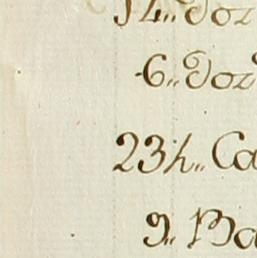 14.. Doz
6.. Doz
23½.. Ca
9.. Ba